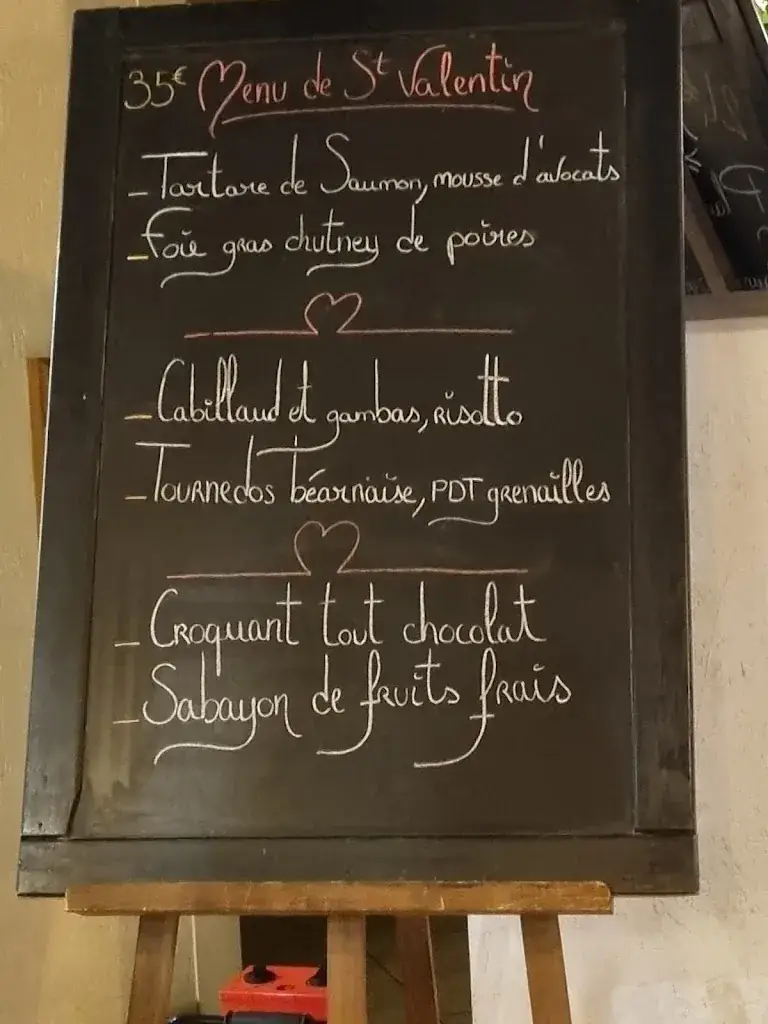 35€ Menu de St Valentin
- Tartare de Saumon, mousse d'avocats
- Foie gras chutney de poires
- Cabillaud et gambas, risotto
- Tournedos béarnaise, PDT grenailles
- Croquant tout chocolat
- Sabayon de fruits frais